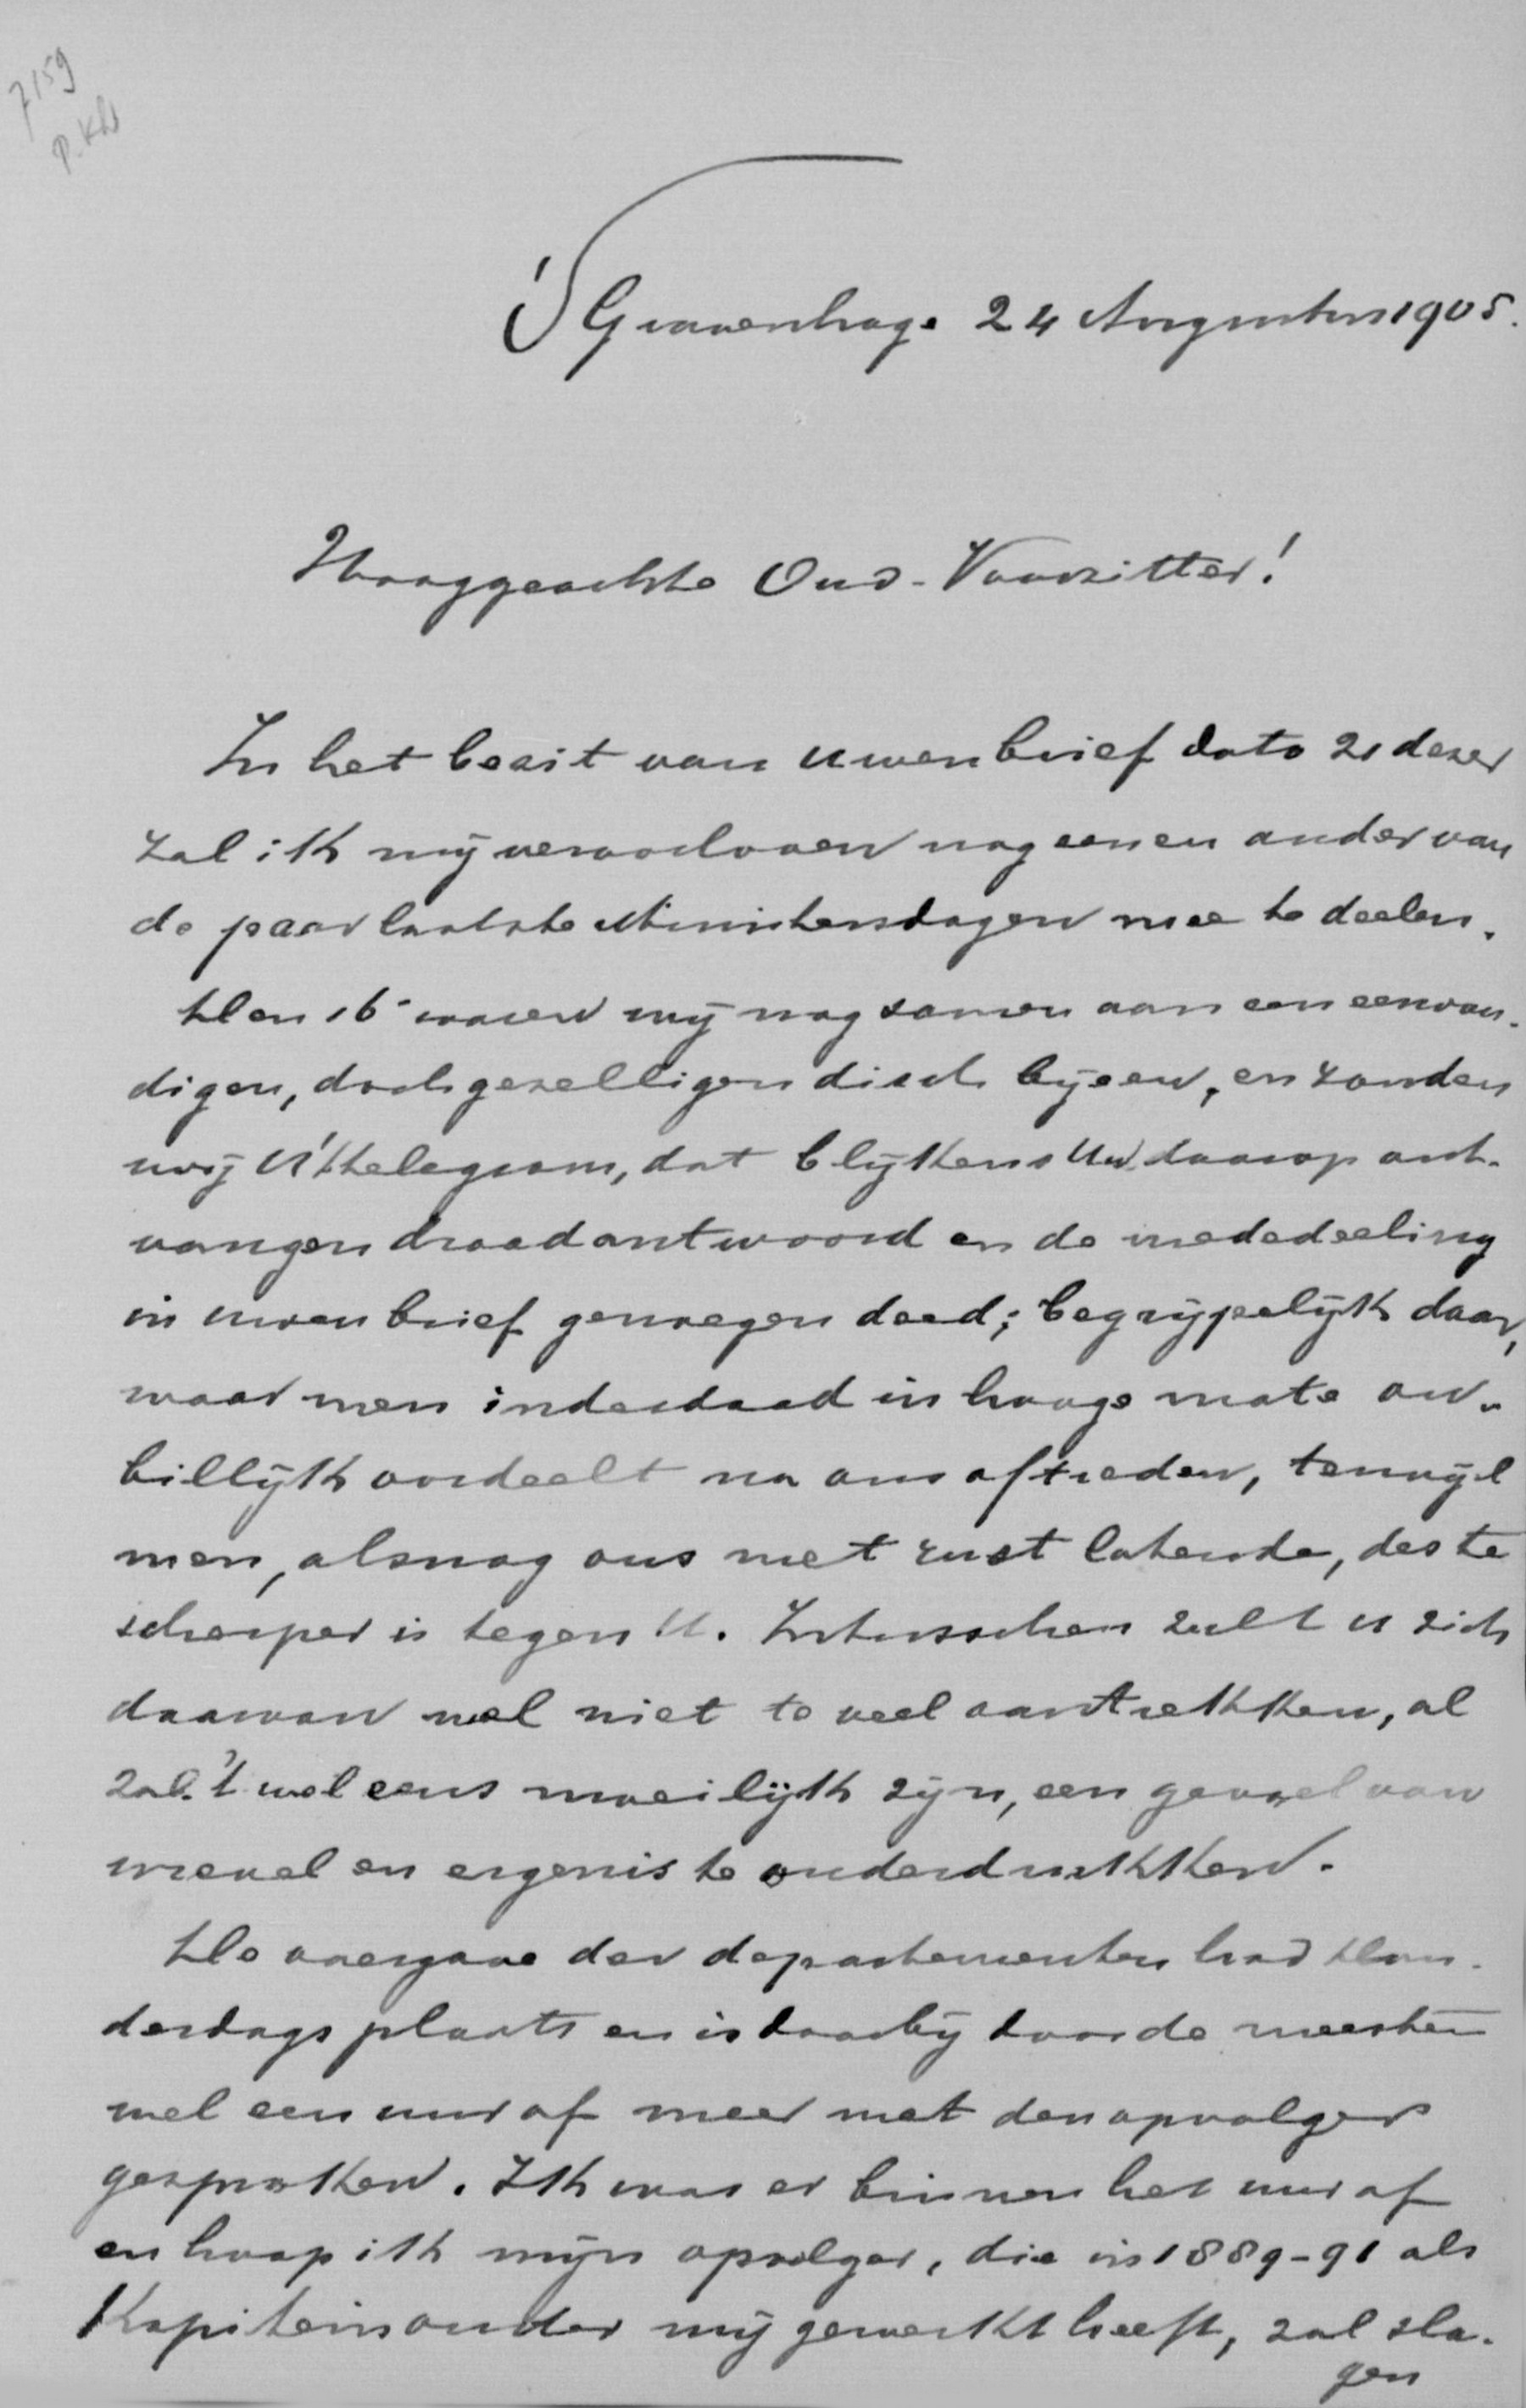 7159
P. Kh
'S Gravenhage 24 Augustus 1905.
Hooggeachte Oud-Voorzitter!
In het bezit van uwen brief dato 21 dezer
zal ik mij veroorloven nog een en ander van
de paar laatste Ministersdagen mee te deelen.
Den 16e waren wij nog samen aan een eenvou-
digen, doch gezelligen disch bijeen, en zonden
wij U 't telegram, dat blijkens Uw daarop ont-
vangen draadantwoord en de mededeeling
in uwen brief genoegen deed; begrijpelijk daar,
waar men inderdaad in hooge mate on-
billijk oordeelt na ons aftreden, terwijl
men, alsnog ons met rust latende, des te
scherper is tegen U. Intusschen zult u zich
daarvan wel niet te veel aantrekken, al
zal 't wel eens moeilijk zijn, een gevoel van
wrevel en ergenis te onderdrukken.
De overgave der departementen had Don-
derdags plaats en is daarbij door de meesten
wel een uur of meer met den opvolger
gesproken. Ik was er binnen het uur af
en hoop ik mijn opvolger, die in 1889-91 als
Kapitein onder mij gewerkt heeft, zal sla-
gen